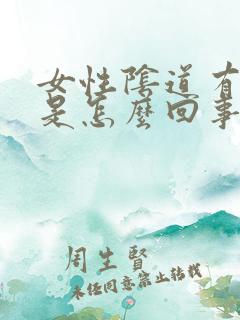 女性陰道有
是怎麼回事
周生賢
未经同意禁止转载